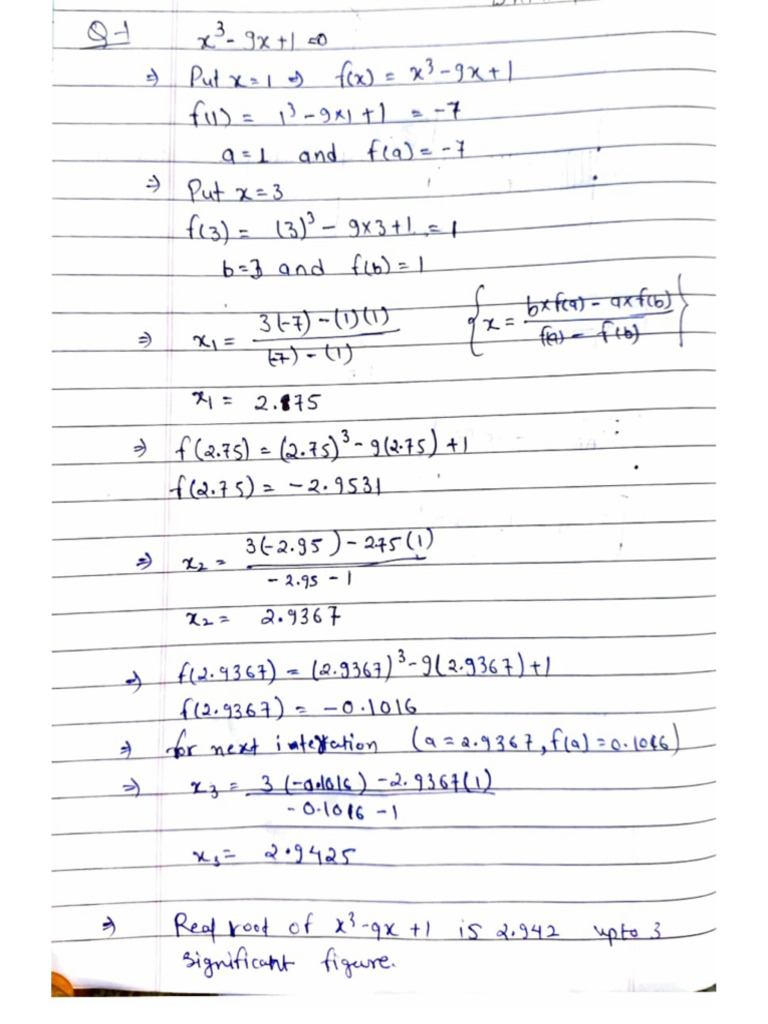 Q-1 x³-9x+1=0
⇒ Put x=1 ⇒ f(x) = x³-9x+1
f(1) = 1³-9×1+1 = -7
a=1 and f(a)=-7
⇒ Put x=3
f(3) = (3)³ - 9×3+1 = 1
b=3 and f(b)=1
⇒ x₁ = 3(-7)-(1)(1) / (-7)-(1) { x = b×f(a) - a×f(b) / f(a) - f(b) }
x₁ = 2.75
⇒ f(2.75) = (2.75)³-9(2.75)+1
f(2.75) = -2.9531
⇒ x₂ = 3(-2.95)-2.75(1) / -2.95-1
x₂ = 2.9367
⇒ f(2.9367) = (2.9367)³-9(2.9367)+1
f(2.9367) = -0.1016
⇒ for next interation (a=2.9367, f(a)=0.1016)
⇒ x₃ = 3(-0.1016)-2.9367(1) / -0.1016-1
x₃ = 2.9425
⇒ Real root of x³-9x+1 is 2.942 upto 3
significant figure.